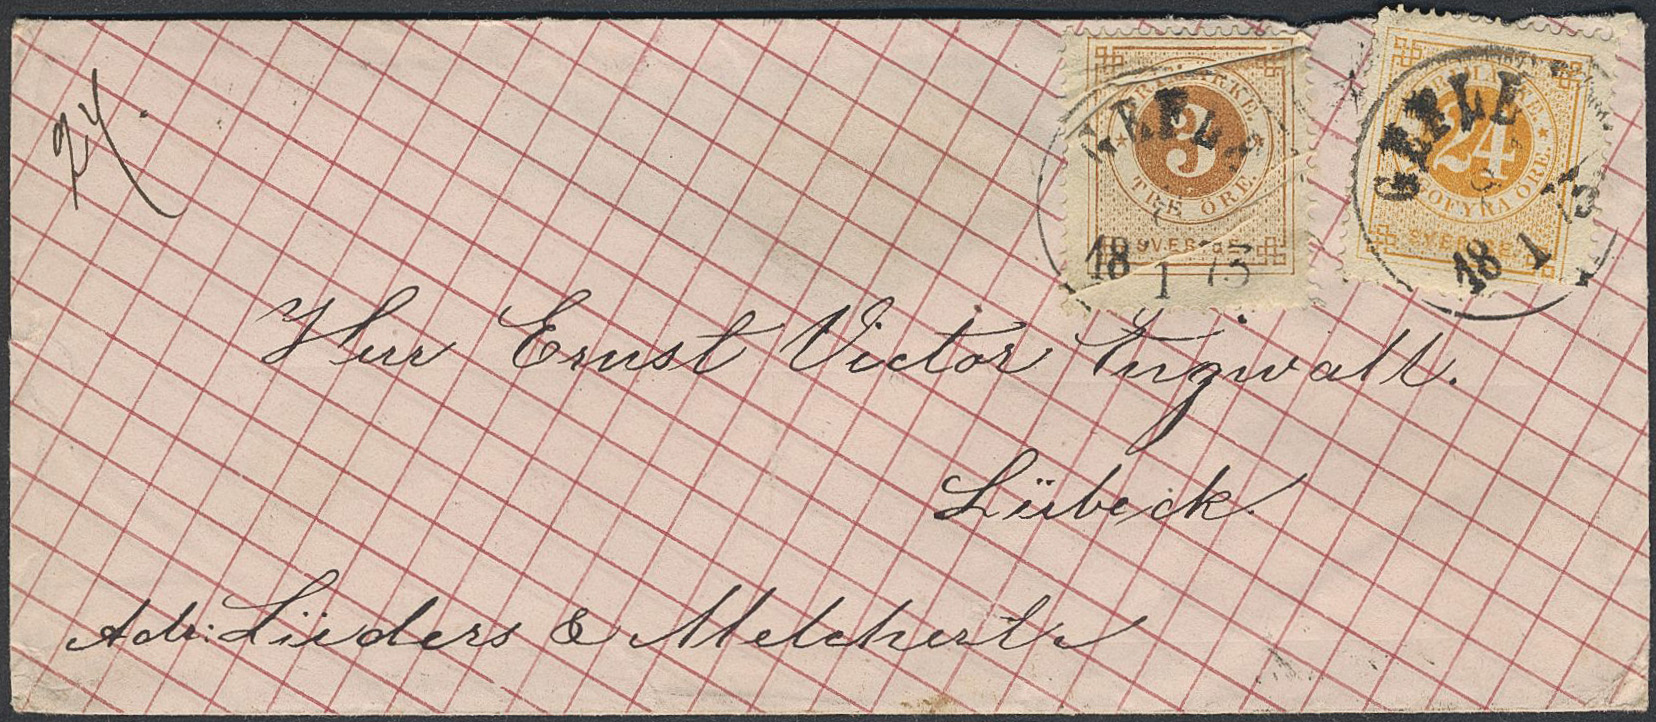 24.
FRIMÄRKE.
3
TRE ÖRE.
SVERIGE
GEFLE
18 1 73
FRIMÄRKE.
24
TJUGOFYRA ÖRE.
SVERIGE.
GEFLE
18 1 73
Herr Ernst Victor
Lübeck.
Adr: Lüders & Melchert